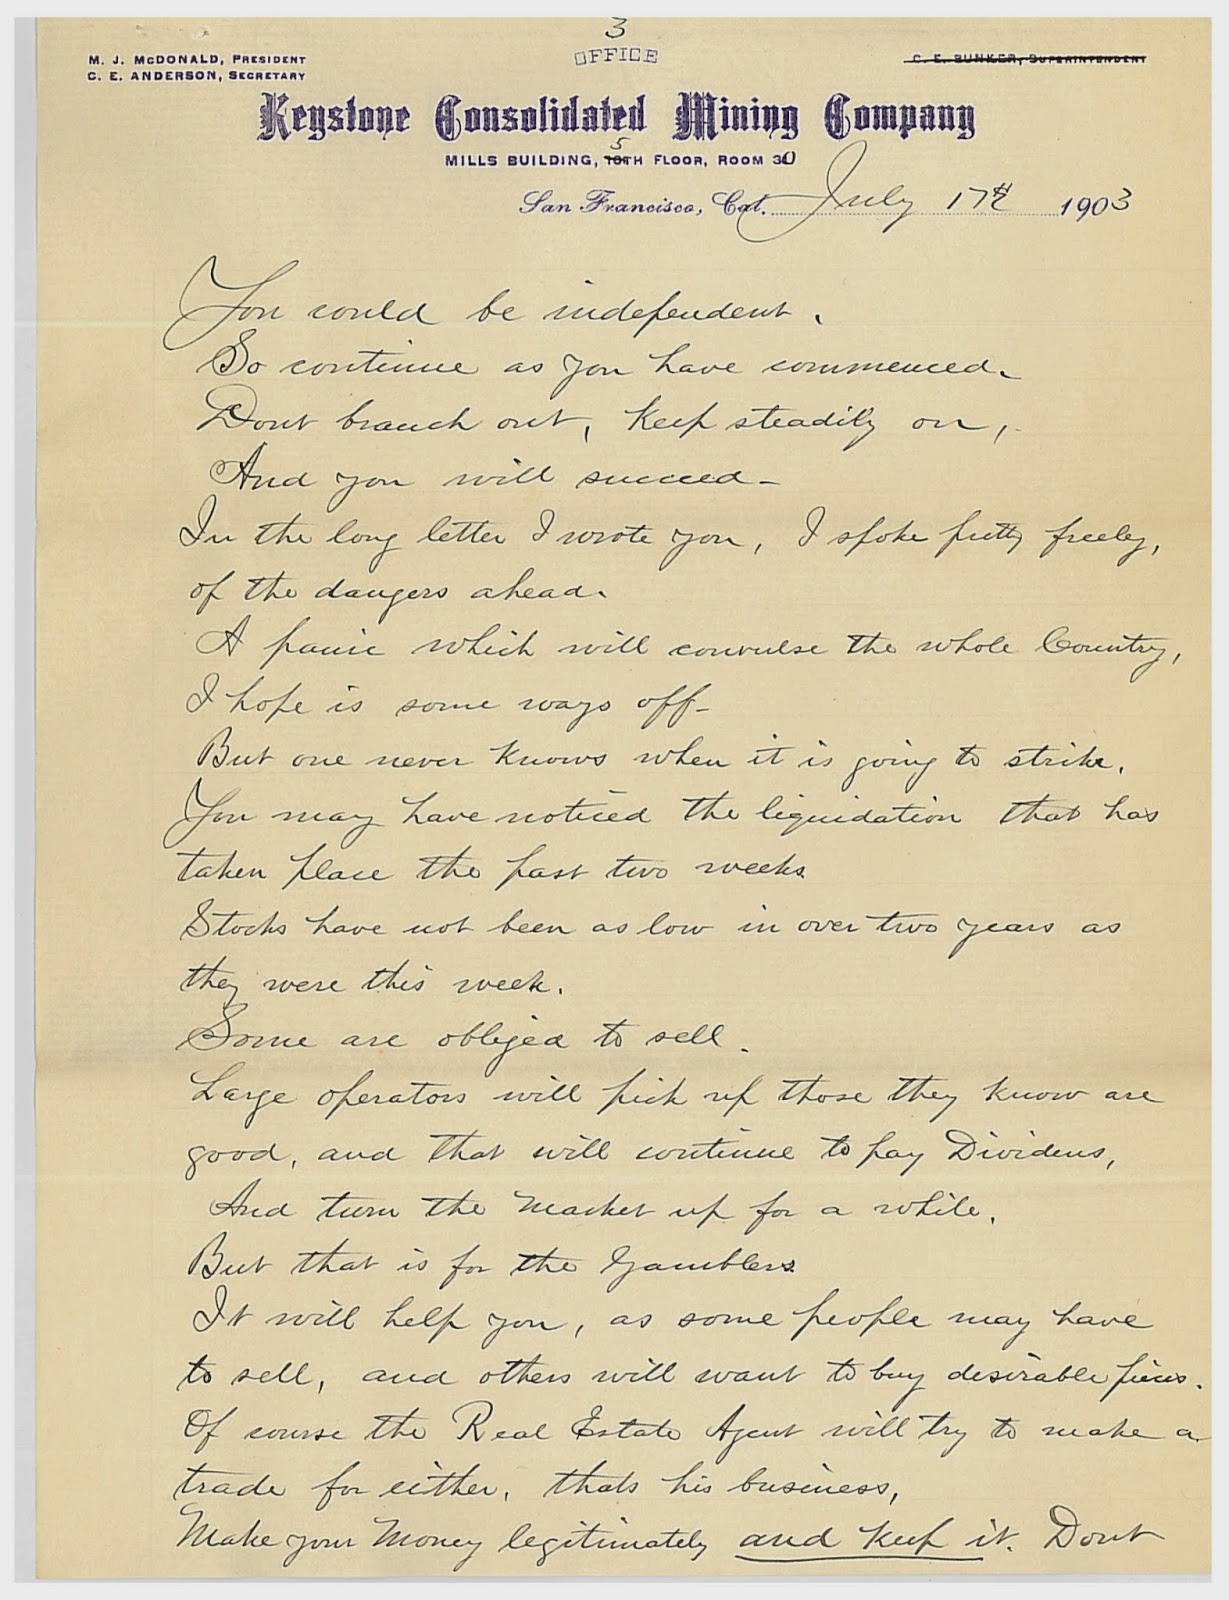 3
OFFICE
M. J. McDONALD, PRESIDENT
C. E. ANDERSON, SECRETARY
C. E. BUNKER, SUPERINTENDENT
Keystone Consolidated Mining Company
5
MILLS BUILDING, 10TH FLOOR, ROOM 30
San Francisco, Cal. July 17th 1903
You could be independent.
So continue as you have commenced.
Dont branch out, keep steadily on,
And you will succeed-
In the long letter I wrote you, I spoke pretty freely,
of the dangers ahead.
A panic which will convulse the whole Country,
I hope is some ways off-
But one never knows when it is going to strike.
You may have noticed the liquidation that has
taken place the past two weeks.
Stocks have not been as low in over two years as
they were this week.
Some are obliged to sell.
Large operators will pick up those they know are
good, and that will continue to pay Dividens,
And turn the Market up for a while.
But that is for the Gamblers.
It will help you, as some people may have
to sell, and others will want to buy desirable pieces.
Of course the Real Estate Agent will try to make a
trade for either, thats his business,
Make your Money legitimately and keep it. Dont